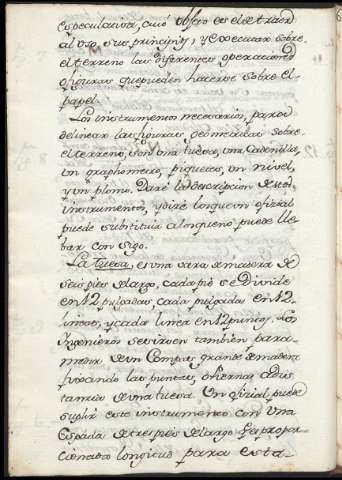 especulativa, cuio objeto es el de traer
al uso, sus principios, y executar sobre
el terreno las diferentes operaciones
o figuras que pueden hacerse sobre el
papel.
Los instrumentos necesarios, para
delinear las figuras geometricas sobre
el terreno, son una tuesa, una Cadenilla,
un graphometro, piquetes, un nivel,
y un plomo. Daré la descripcion de este
instrumento, y diré lo que un ofizial
puede substituir a lo que no puede lle-
bar con sigo.
La tuesa, es una vara de madera de
seis pies de largo, cada pie se divide
en 12 pulgadas, cada pulgada en 12
lineas, y cada linea en 12 puntos. Los
Ingenieros se sirven tambien para
medir de un Compas grande de madera
fixando las puntas, o piernas a dis-
tancia de una tuesa. Un ofizial puede
suplir este instrumento con una
Espada de tres pies de largo
cionada longitud para esta